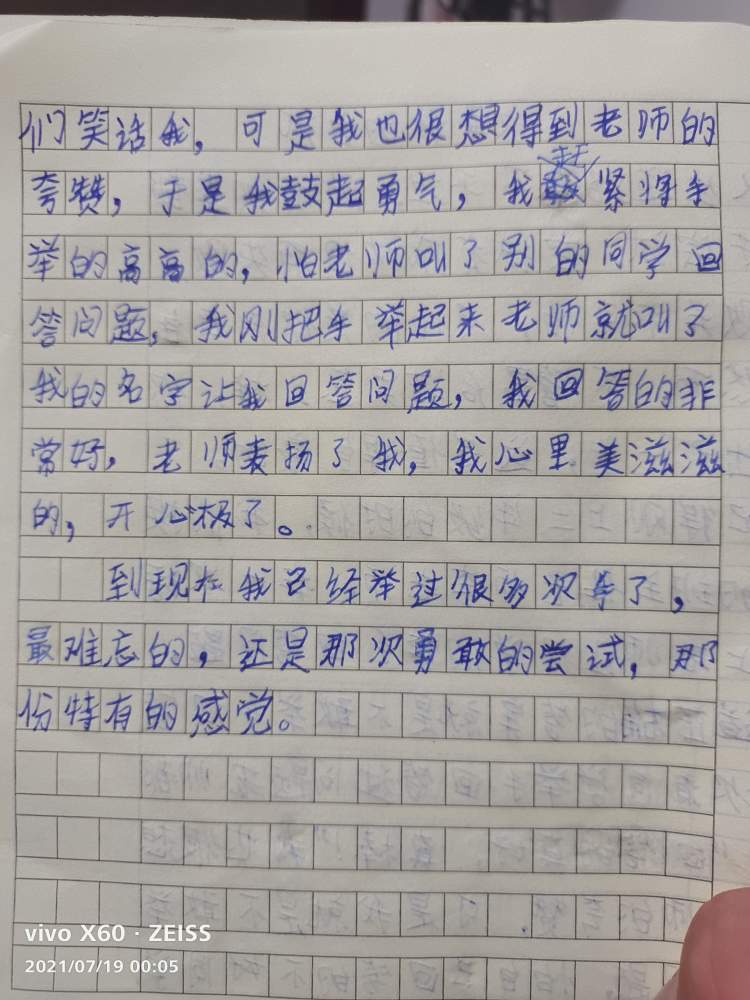 们笑话我，可是我也很想得到老师的
夸赞，于是我鼓起勇气，我赶紧将手
举的高高的，怕老师叫了别的同学回
答问题，我刚把手举起来老师就叫了
我的名字让我回答问题，我回答的非
常好，老师表扬了我，我心里美滋滋
的，开心极了。
到现在我已经举过很多次手了，
最难忘的，还是那次勇敢的尝试，那
份特有的感觉。
vivo X60 · ZEISS
2021/07/19 00:05